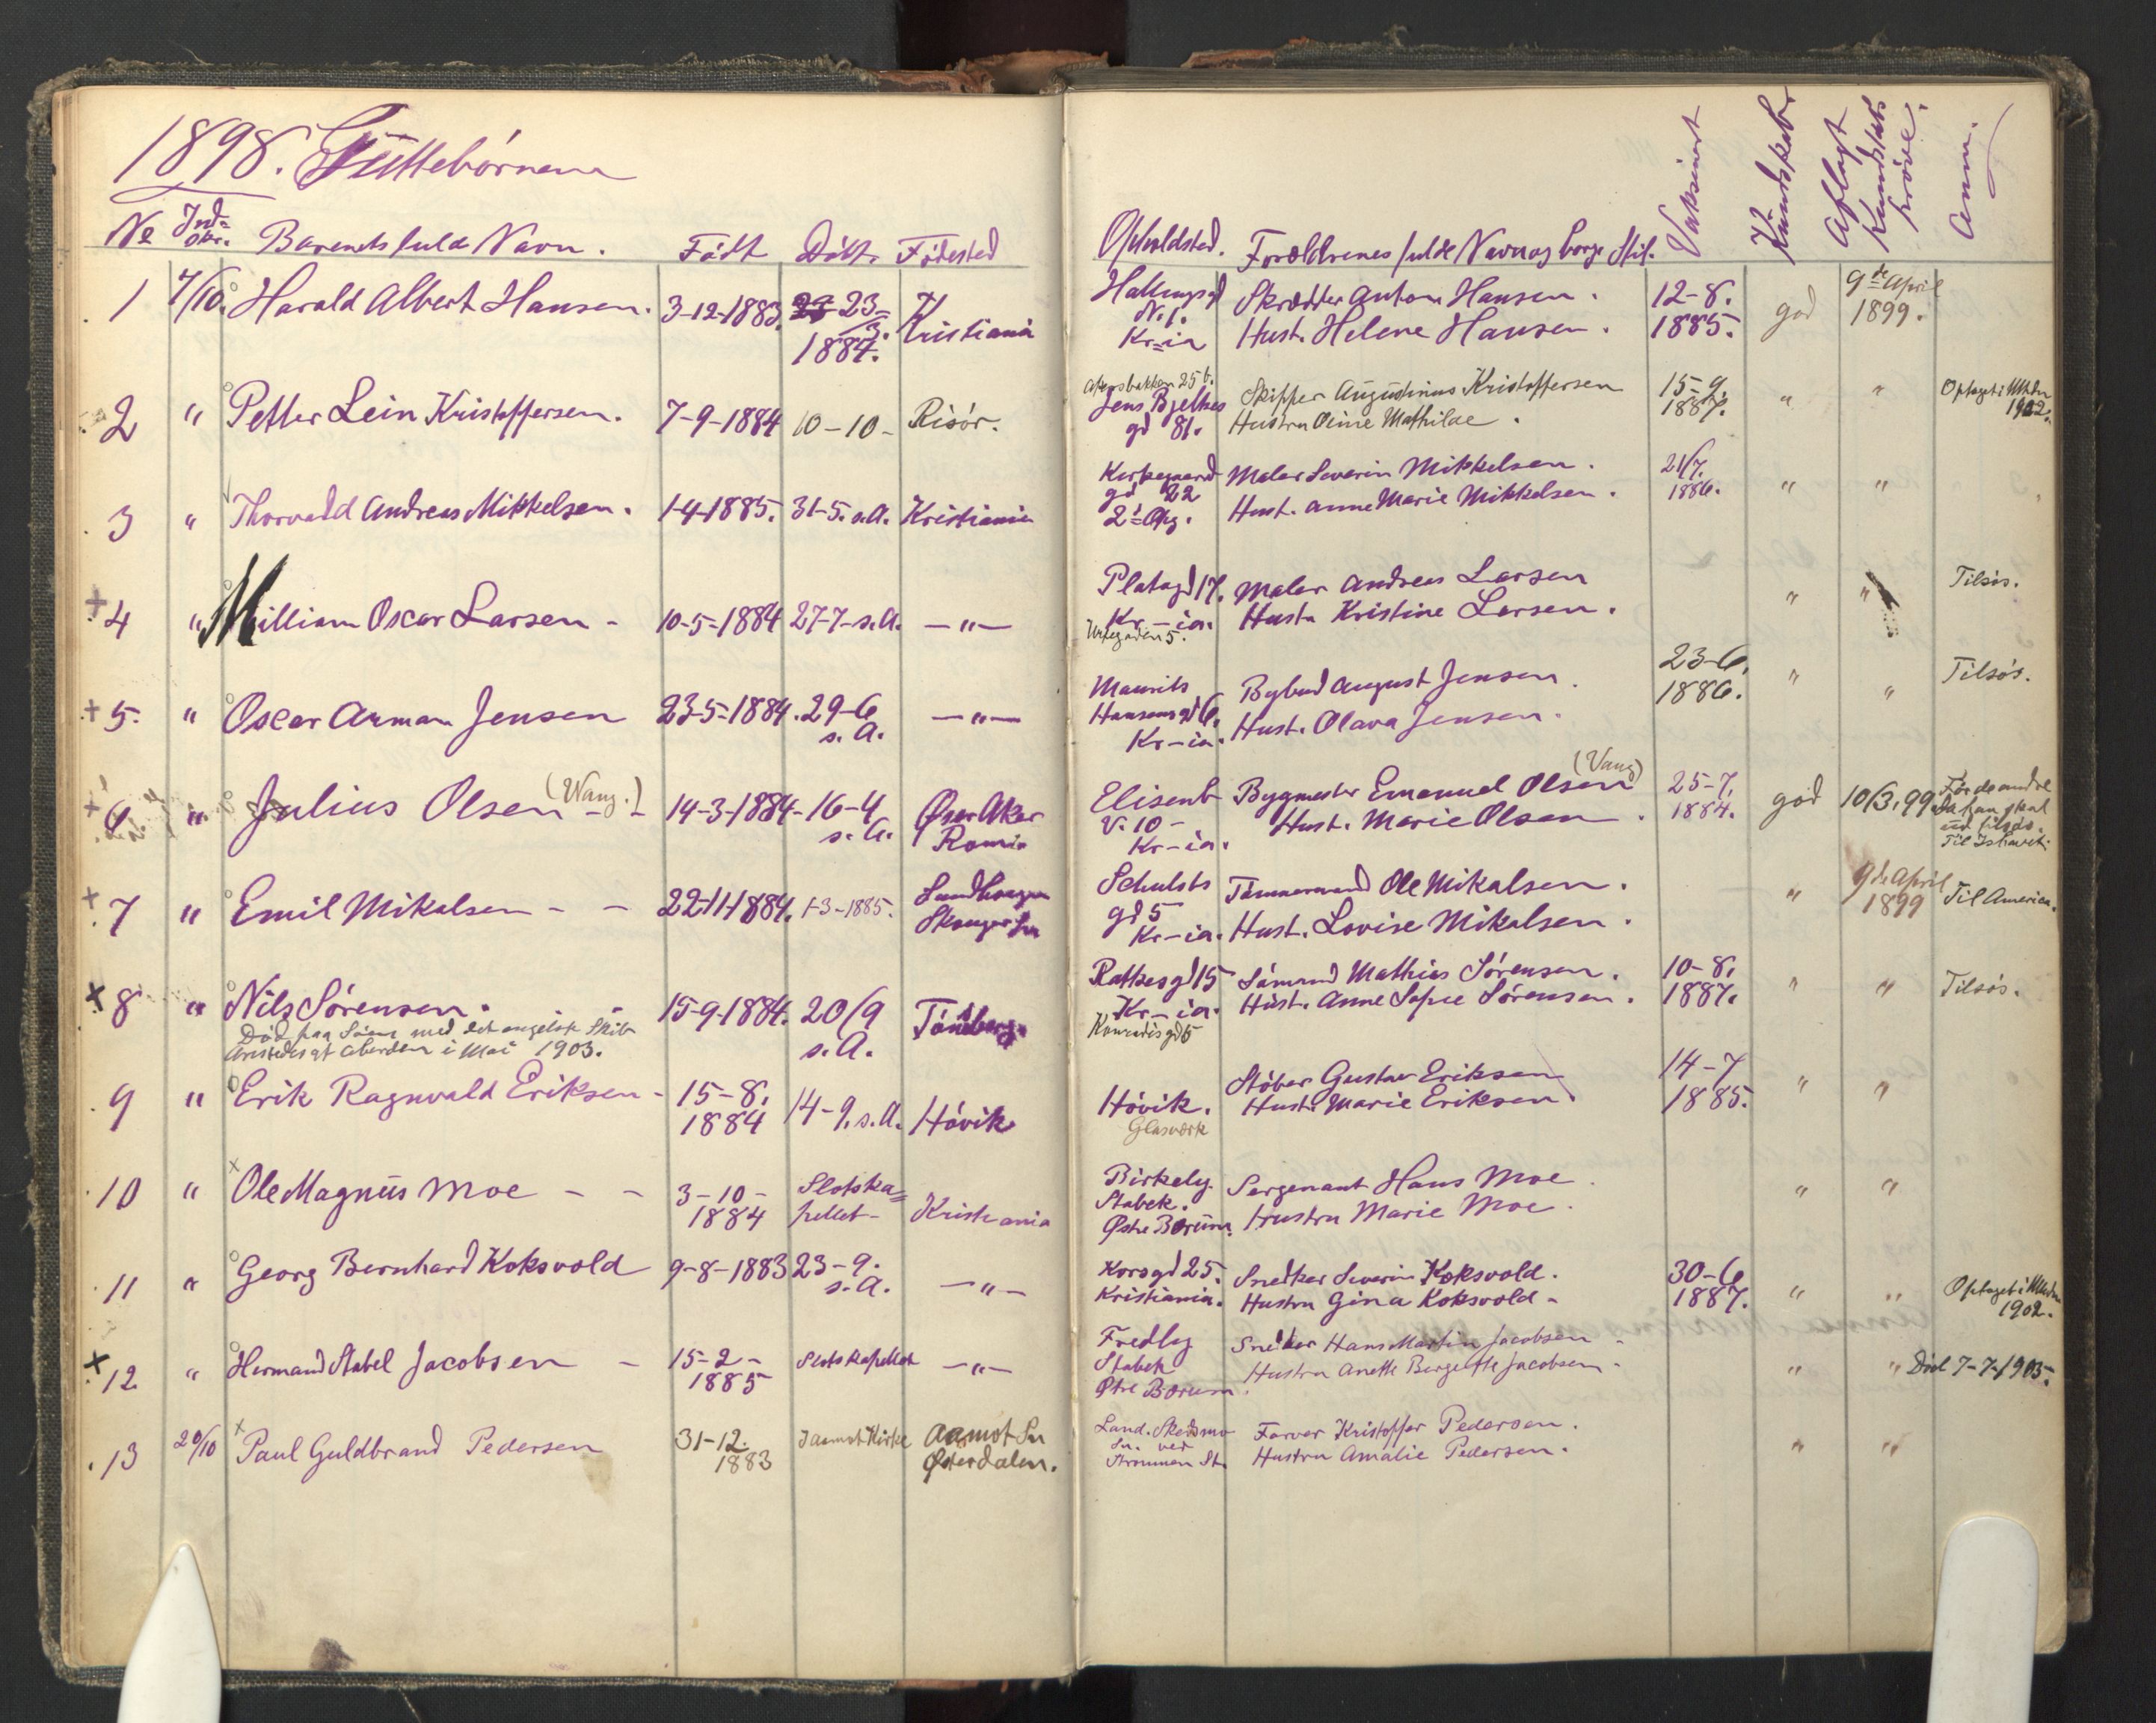 1898. Güttebørnene
No Ind-skr. Barnets fulde Navn. Født Døbt. Fødested Opholdsted. Forældrenes fulde Navn og borge Stil. Vaksinert Kundskaber Aflagt Kundskabs prøve. Anm.
1 7/10. Harald Albert Hansen. 3-12-1883. 23-3. 1884. Kristiania
N. 1. Kr-ia Skrædder Anton Hansen. Hust. Helene Hansen. 12-8. 1885. god 9de April 1899.
2 " Petter Lein Kristoffersen. 7-9-1884 10-10- Risør.
Akersbakken 25 b. Jens Bjelkes gd 81. Skipper Augustinus Kristoffersen Hustru Oline Mathilde. 15-9. 1887. " " Optaget i Mthdn 1902.
3 " Thorvald Andreas Mikkelsen. 1-4-1885. 31-5. s.A. Kristiania
Kirkegaard gd 22 2d Opg. Maler Severin Mikkelsen. Hust. Anne Marie Mikkelsen. 21/7. 1886. " "
+4 " William Oscar Larsen - 10-5-1884 27-7-s.A. —"—
Platogd 17. Kr-ia. Urtegaden 5. Maler Andreas Larsen Hustr Kristine Larsen. " " Tilsøs.
+5. " Oscar Arman Jensen 23-5-1884. 29-6 s.A. —"—
Maurits Hansens gd 6. Kr-ia. Bybud August Jensen. Hust. Olava Jensen. 23-6. 1886. " " Tilsøs.
+6 " Julius Olsen (Wang.) 14-3-1884- 16-4 s.A. Øster Aker
Elisenb v. 10 - Kr-ia. Bygmester Emanuel Olsen (Vang) Hust. Marie Olsen. 25-7. 1884. god 10/3. 99 Før de andre da han skal ud tilsøs. Til Ishavet.
+7 " Emil Mikalsen - - 22-11-1884. 1-3-1885.
Schulsts gd 5 Kr-ia. Tømmermand Ole Mikalsen. Hust. Lovise Mikalsen. " 9de April 1899 Til America.
x8 " Nils Sørensen. - 15-9-1884. 20/9 s.A. Tønsberg
Død paa Søen med det engelsk Skib at Aberden i Mai 1903.
Ratkesgd 15 Kr-ia. Konradis gd 5 Sømand Mathias Sørensen. Hust. Anne Sofie Sørensen. 10-8. 1887. " " Tilsøs.
9 " Erik Ragnvald Eriksen - 15-8. 1884 14-9. s.A. Høvik
Høvik. Glasværk Støber Gustav Eriksen Hust. Marie Eriksen. 14-7 1885. " "
10 " Ole Magnus Moe - - 3-10-1884 Slotska=pellet- Kristiania
Birkely. Stabek. Østre Bærum. Sergenant Hans Moe. Hustru Marie Moe. " "
11 " Georg Bernhard Koksvold 9-8-1883 23-9. s.A. —"—
Korsgd 25. Kristiania. Snedker Severin Koksvold. Hustru Gina Koksvold - 30-6 1887. " " Optaget i Mthdn 1902.
x12. " Hermand Stabel Jacobsen - 15-2-1885 Slotskapellet —"—
Fredly Stabek Øtre Bærum. Snedker Hans Martin Jacobsen - Hustru Anette Bergette Jacobsen - " " Død 7-7-1903.
13 20/10 Paul Guldbrand Pedersen 31-12. 1883 I Aamot Kirke Aamot Sn Østerdalen.
Land. Skedsmo Sn. ved Strømmen St. Farver Kristoffer Pedersen. Hustru Amalie Pedersen. " "